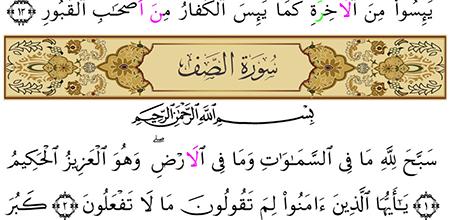 يَئِسُوا۟ مِنَ الْاَخِرَةِ كَمَا يَئِسَ الْكُفَّارُ مِنَ اَصْحَابِ الْقُبُورِ ﴿١٣﴾
سُورَةُ الصَّفّ
بِسْمِ اللَّهِ الرَّحْمَٰنِ الرَّحِيمِ
سَبَّحَ لِلَّهِ مَا فِى السَّمَاوَاتِ وَمَا فِى الْاَرْضِ ۖ وَهُوَ الْعَزِيزُ الْحَكِيمُ
﴿١﴾ يَاأَيُّهَا الَّذِينَ ءَامَنُوا۟ لِمَ تَقُولُونَ مَا لَا تَفْعَلُونَ ﴿٢﴾ كَبُرَ